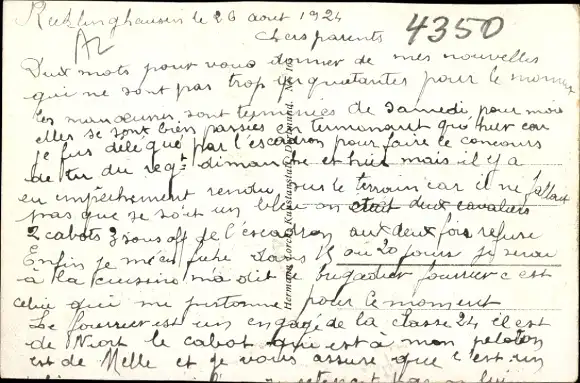 Recklinghausen le 26 aout 1924
4350
A2
chers parents
Deux mots pour vous donner de mes nouvelles
qui ne sont pas trop inquietantes pour le moment
les manœuvres sont terminées de samedi pour moi
elles se sont bien passées en terminant qu'hier car
je fus délégué par l'escadron pour faire le concours
de tir du regt dimanche et hier mais il y a
eu empêchement rendu sur le terrain car il ne fallait
pas que se soit un bleu on était deux cavaliers
2 cabots 3 sous off de l'escadron aux deux fois refuse
Enfin je m'en fiche dans 15 ou 20 jours je serai
à la cuisine m'a dit le brigadier fourrier c'est
celui qui me pistonne pour le moment
Le fourrier est un engagé de la classe 24 il est
de Niort le cabot qui est à mon peloton
est de Melle et je vous assure que c'est un
pas
Hermann Lorch, Kunstanstalt, Dortmund.